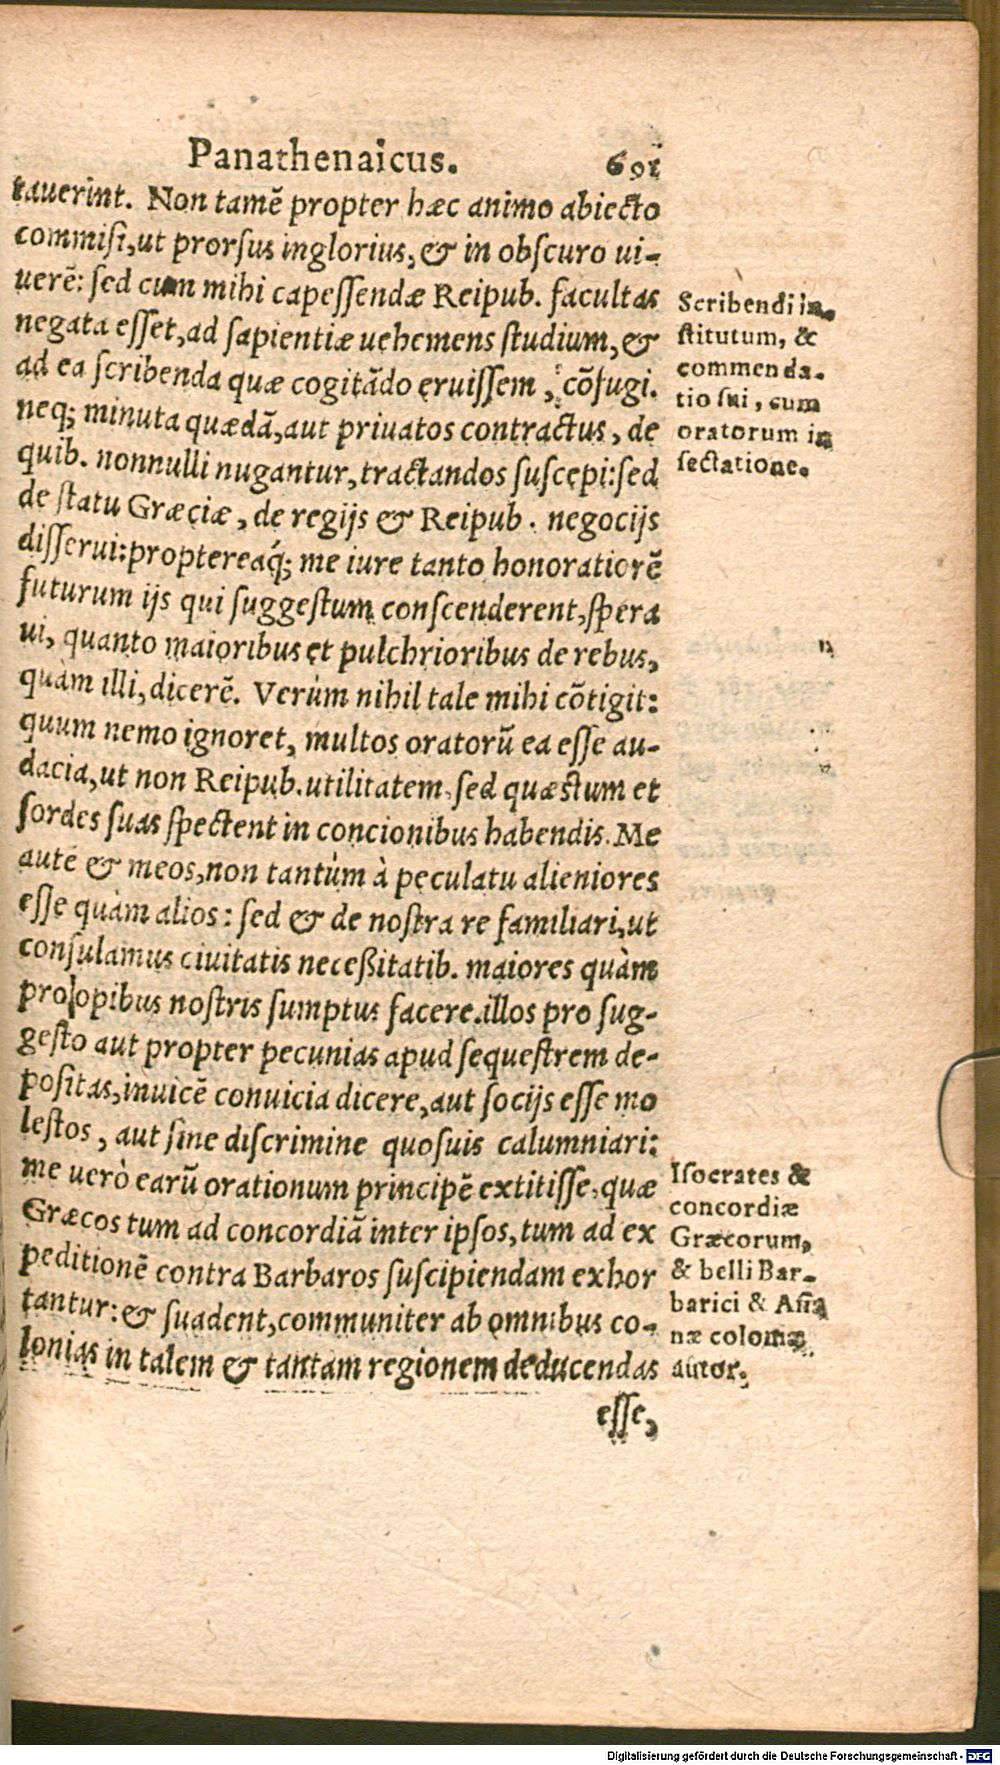 Panathenaicus. 691
tauerint. Non tamẽ propter hæc animo abiecto
commisi, ut prorsus inglorius, & in obscuro ui-
uerẽ: sed cum mihi capessendæ Reipub. facultas
negata esset, ad sapientiæ uehemens studium, &
ad ea scribenda quæ cogitãdo eruissem, cõfugi.
neq; minuta quædã, aut priuatos contractus, de
quib. nonnulli nugantur, tractandos suscepi: sed
de statu Græciæ, de regijs & Reipub. negocijs
disserui: proptereaq́; me iure tanto honoratiorẽ
futurum ijs qui suggestum conscenderent, spera
ui, quanto maioribus et pulchrioribus de rebus,
quàm illi, dicerẽ. Verùm nihil tale mihi cõtigit:
quum nemo ignoret, multos oratorũ ea esse au-
dacia, ut non Reipub. utilitatem, sed quæstum et
sordes suas spectent in concionibus habendis. Me
autẽ & meos, non tantùm à peculatu alieniores
esse quàm alios: sed & de nostra re familiari, ut
consulamus ciuitatis neceßitatib. maiores quàm
pro opibus nostris sumptus facere. illos pro sug-
gesto aut propter pecunias apud sequestrem de-
positas, inuicẽ conuicia dicere, aut socijs esse mo
lestos, aut sine discrimine quosuis calumniari:
me uerò earũ orationum principẽ extitisse, quæ
Græcos tum ad concordiã inter ipsos, tum ad ex
peditionẽ contra Barbaros suscipiendam exhor
tantur: & suadent, communiter ab omnibus co-
lonias in talem & tantam regionem deducendas
esse,
Scribendi in-
stitutum, &
commenda-
tio sui, cum
oratorum in
sectatione.
Isocrates &
concordiæ
Græcorum,
& belli Bar-
barici & Asia
næ coloniæ
autor.
Digitalisierung gefördert durch die Deutsche Forschungsgemeinschaft - DFG